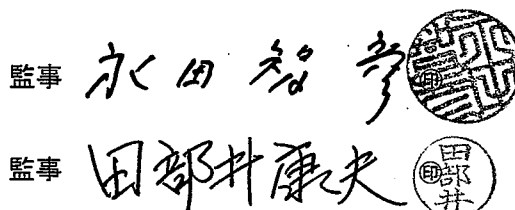 監事 永田智彦 印
監事 田部井康夫 印 田部井